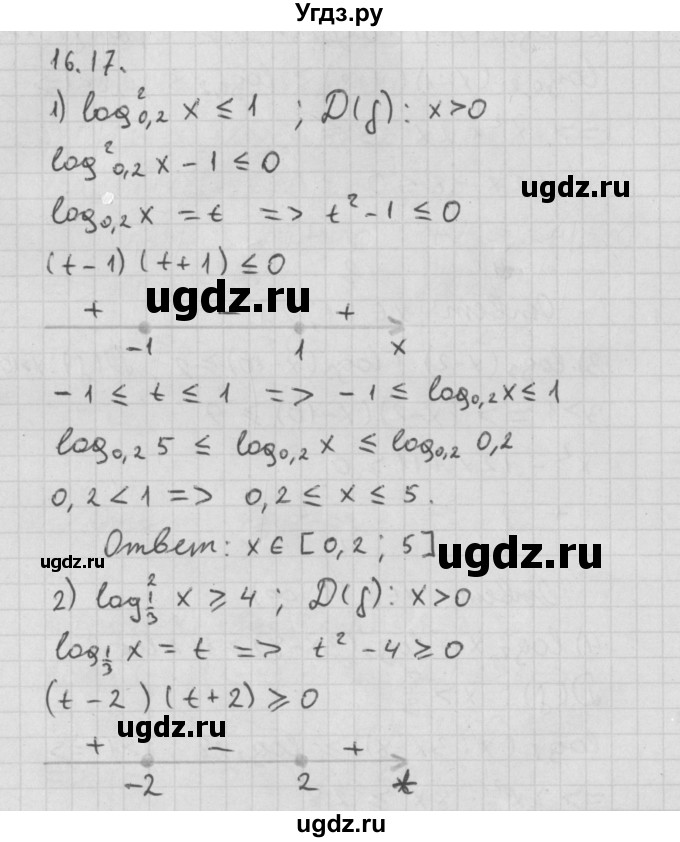 Угдз.ру
16.17.
1) log²₀,₂ x ≤ 1 ; D(f): x>0
log²₀,₂ x - 1 ≤ 0
ugdz.ru
log₀,₂ x = t => t² - 1 ≤ 0
(t - 1) (t + 1) ≤ 0
ugdz.ru
+ - +
-1 1 x
-1 ≤ t ≤ 1 => -1 ≤ log₀,₂ x ≤ 1
log₀,₂ 5 ≤ log₀,₂ x ≤ log₀,₂ 0,2
0,2 < 1 => 0,2 ≤ x ≤ 5.
Ответ: x ∈ [0,2; 5]
ugdz.ru
ugdz.ru
2) log²_{1/3} x ≥ 4 ; D(f): x>0
log_{1/3} x = t => t² - 4 ≥ 0
(t - 2) (t + 2) ≥ 0
ugdz.ru
+ - +
-2 2
ugdz.ru